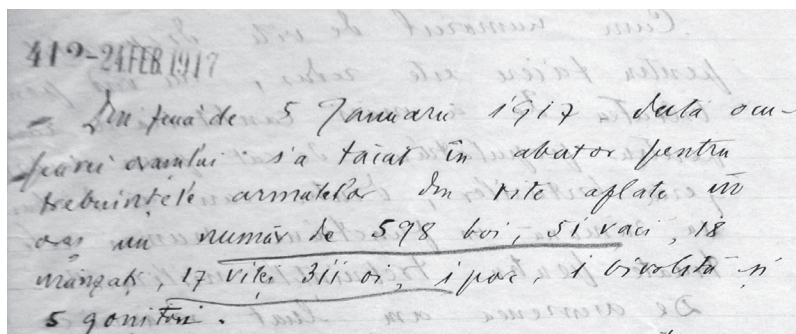 412-24 FEB 1917
- Din ziua de 5 Januarie 1917 data ocu-
părei orașului s'a tăiat în abator pentru
trebuințele armatelor din vite aflate in
oraș un număr de 598 boi, 51 vaci, 18
mânzați, 17 viței 311 oi, 1 porc, 1 bivolită și
5 gonitori.